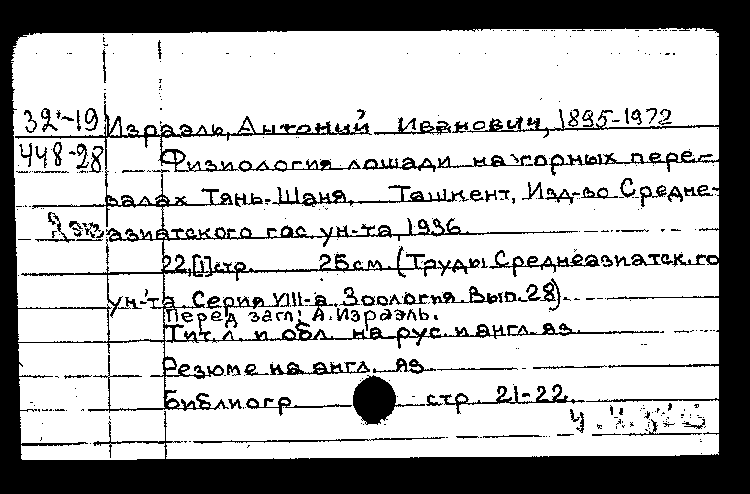 32-19 Израэль, Антоний Иванович, 1895-1972
448-28 Физиология лошади на горных пере-
валах Тянь-Шаня. Ташкент, Изд-во Средне-
2 экз азиатского гос. ун-та, 1936.
22,[1]стр. 25см. (Труды Среднеазиатск. го
ун-та. Серия VIII-а. Зоология. Вып. 28).
Перед загл: А. Израэль.
Тит. л. и обл. на рус. и англ. яз.
Резюме на англ. яз.
Библиогр. стр. 21-22.